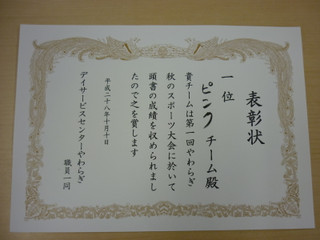 表彰状
一位 ピンクチーム殿
貴チームは第一回やわらぎ
秋のスポーツ大会に於いて
頭書の成績を収められまし
たので之を賞します
平成二十八年十月十日
デイサービスセンターやわらぎ
職員一同